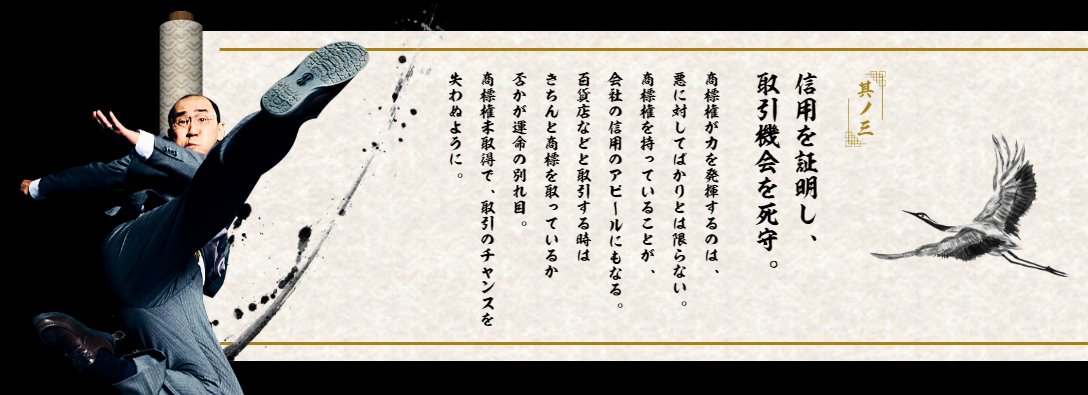 其ノ三
信用を証明し、
取引機会を死守。
商標権が力を発揮するのは、
悪に対してばかりとは限らない。
商標権を持っていることが、
会社の信用のアピールにもなる。
百貨店などと取引する時は
きちんと商標を取っているか
否かが運命の別れ目。
商標権未取得で、取引のチャンスを
失わぬように。